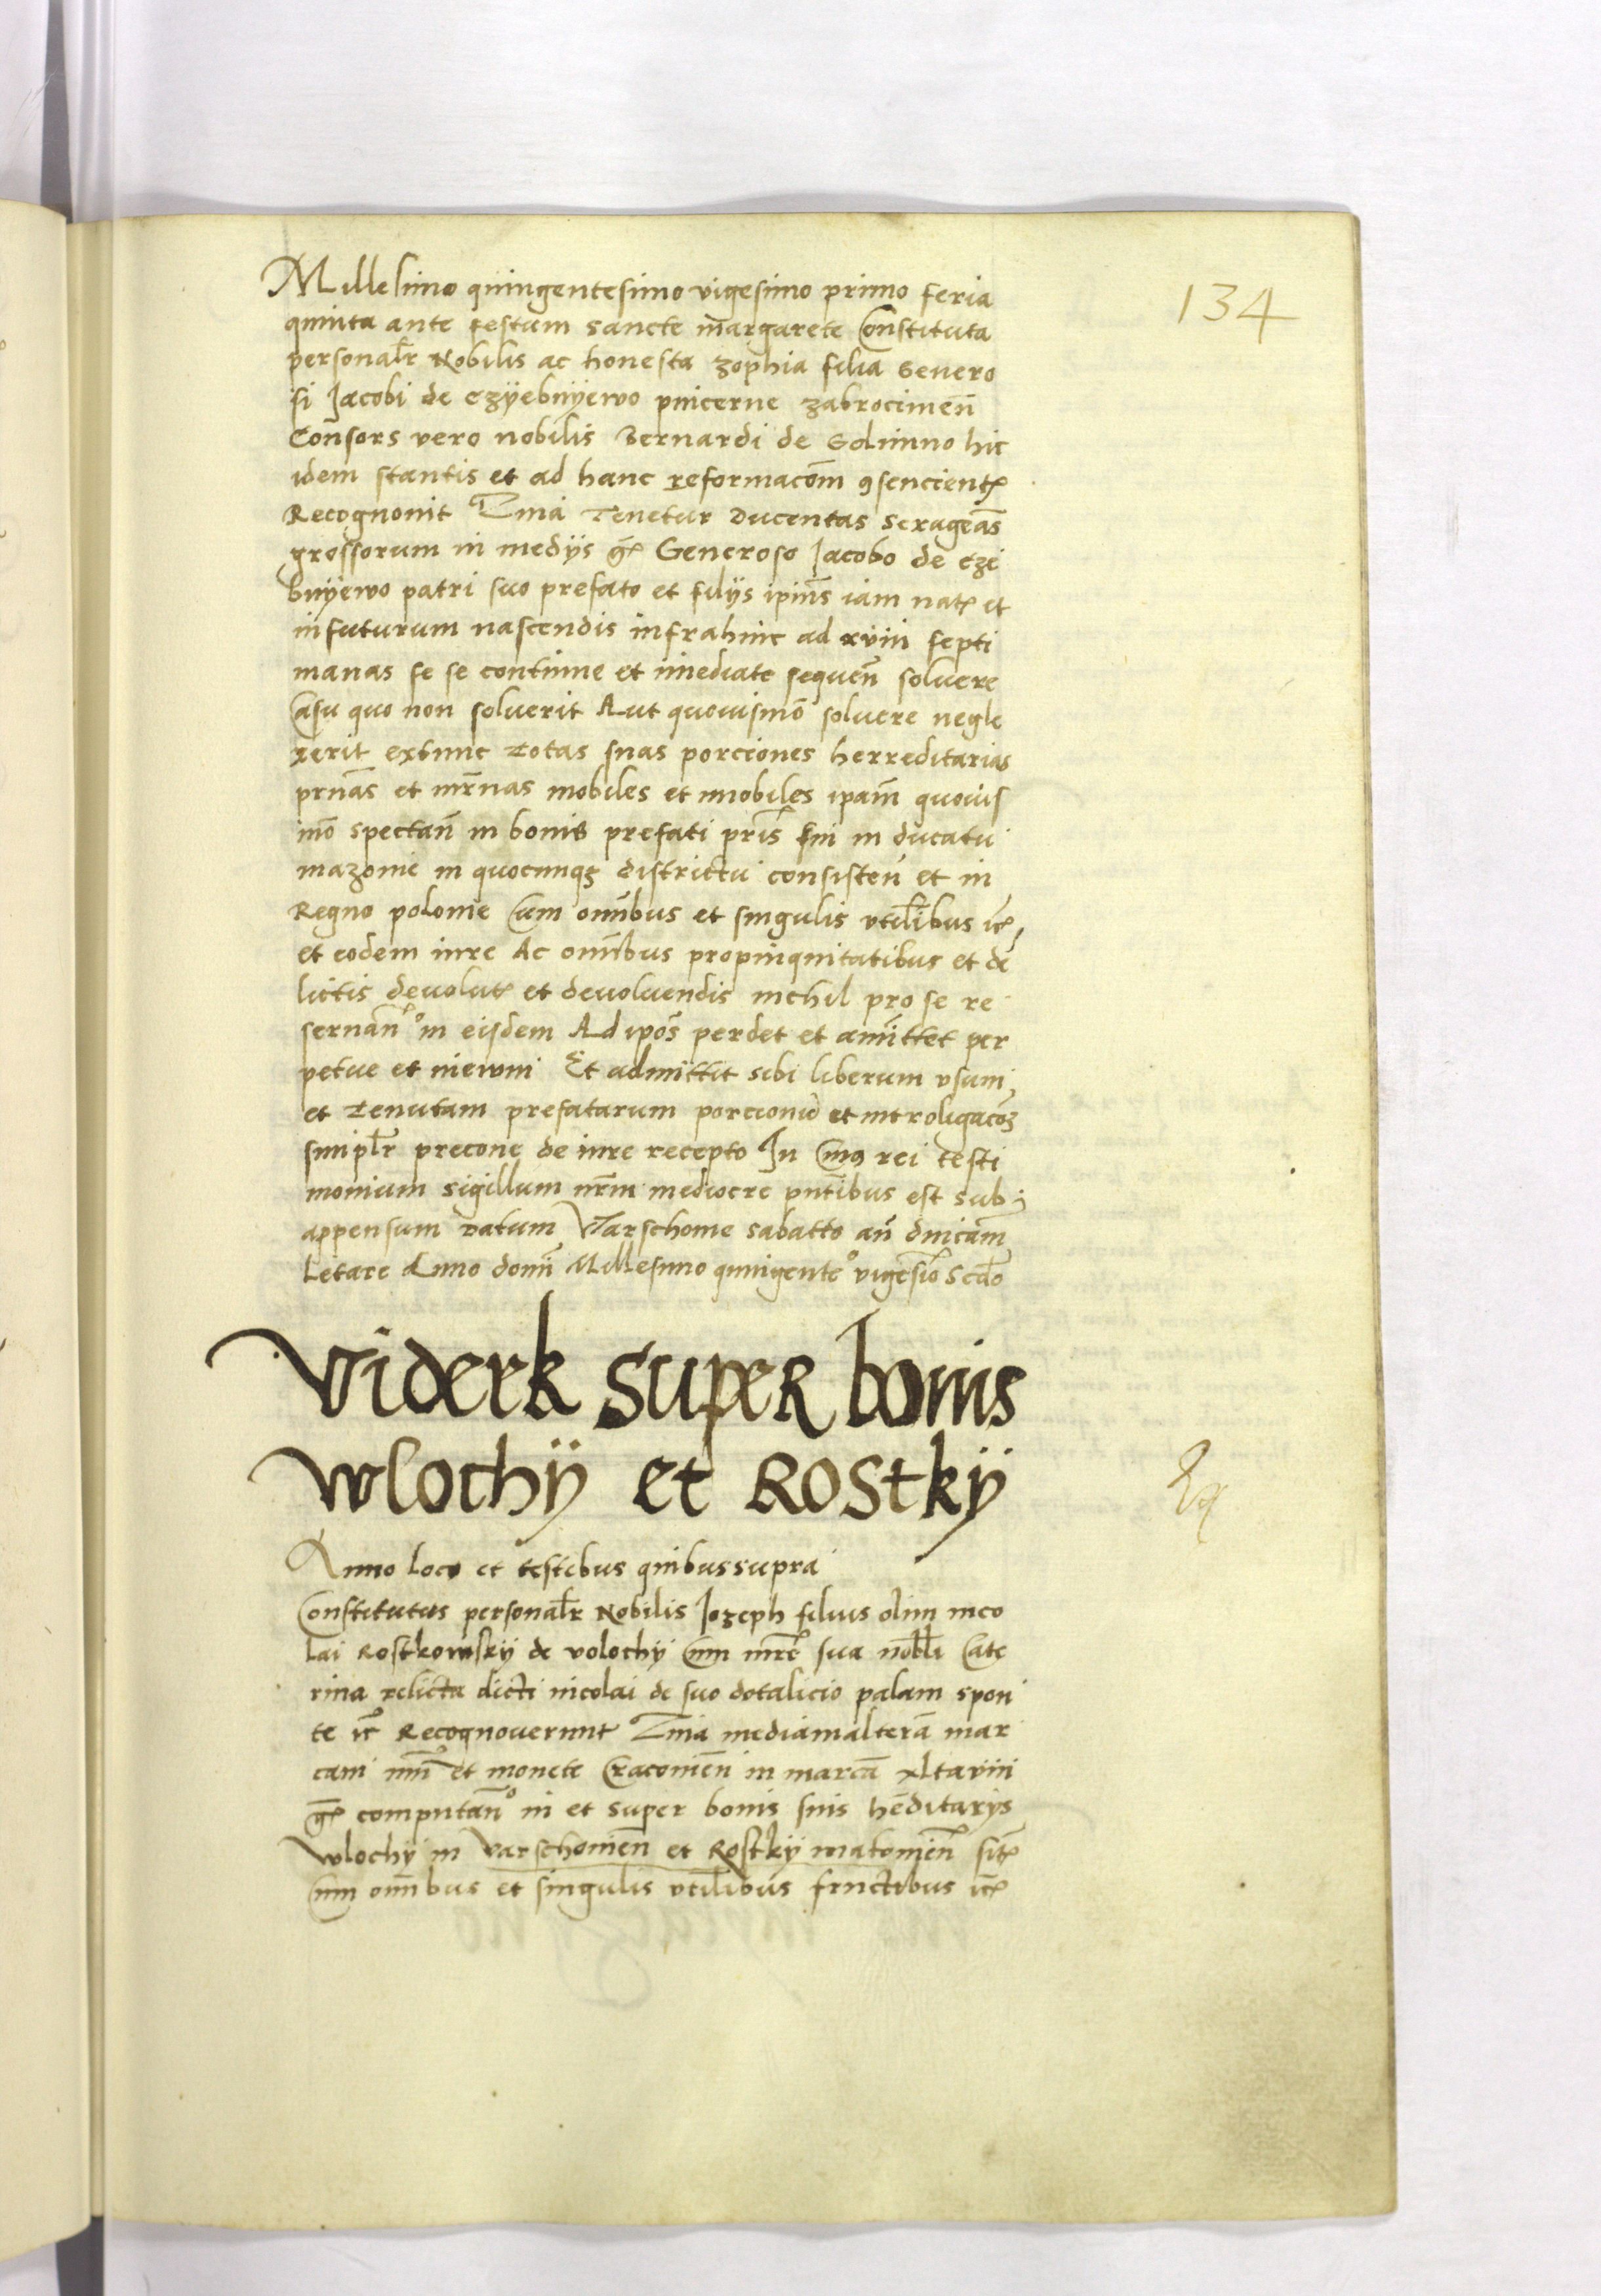 134
Millesimo quingentesimo vigesimo primo feria
quinta ante festum sancte margarete Constituta
personalr̃ Nobilis ac honesta zophia filia Genero
si Jacobi de Czÿebnÿewo pincerne zakrocimen̄
Consors vero nobilis Bernardi de Golimno hic
idem stantis et ad hanc reformacōm ꝯsencient̃
Recognovit Quia Tenetur Ducentas sexagēas
grossorum in medÿs g̃ Generoso Jacobo de Czi
bnÿewo patri suo prefato et filÿs ipiūs iam nat̃ et
infuturum nascendis infrahinc ad xviii septi
manas se se continue et iīmediate sequen̄ soluere
Casu quo non soluerit Aut quouismō soluere negle
xerit extunc Totas suas porciones herreditarias
pr̄nas et mr̄nas mobiles et imobiles ipam̄ quouis
mō spectan̄ in bonis prefati pris̃ sui in ducatu
mazouie in quocunqꝫ districtu consisten̄ et in
Regno polonie Cum om̄ibus et singulis vtil̃ibus ic̃
et eodem iure Ac om̄ibus propinquitatibus et de
lictis deuolut̃ et deuoluendis nichil pro se re
seruan̄° in eisdem Ad ip̄os perdet et amittet per
petue et in ewm Et admittit sibi liberum vsum
et Tenutam prefatarum porcionū et introligacōꝫ
simplr̃ precone de iure recepto In Cuiꝰ rei testi
monium sigillum nr̄m mediocre pn̄tibus est sub
appensum Datum Varschouie sabatto an̄ dnicam̄
Letare Anno domī Millesimo quingente° vigesīo Scdo
Viderk super bonis
wlochÿ et Rostkÿ
Anno Loco et testibus quibus supra
Constitutus personalr̃ Nobilis Jozeph filius olim nico
lai Rostkowskÿ de volochÿ Cum mr̄e sua nobl̃i Cate
rina relicta dicti nicolai de suo dotalicio palam spon
te ic̃ Recognouerunt Quia mediamalterā mar
cam nūi et monete Cracouien̄ in marcā xltaviii
g̃ computan̄° in et super bonis suis hēditarÿs
wlochÿ in Varschouien̄ et Rostkÿ makouien̄ sit̃
Cum om̄ibus et singulis vtil̃ibus fructibus ic̃